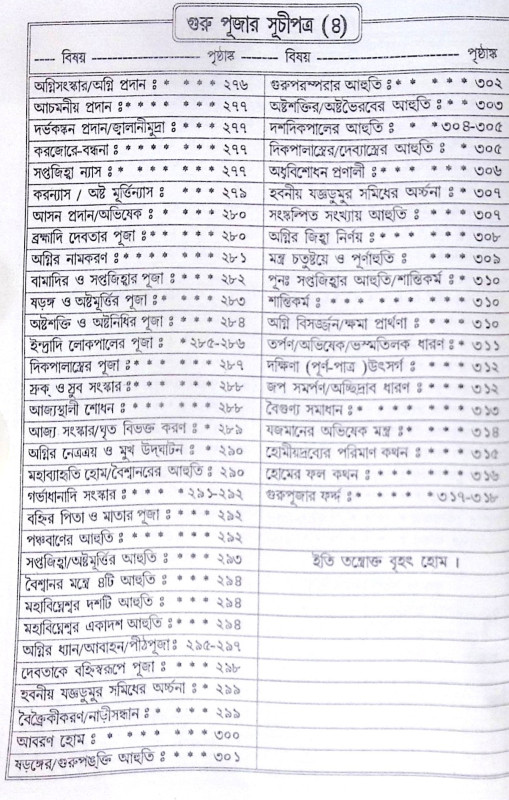 গুরু পূজার সূচীপত্র (৪)
---- বিষয় ---------------- পৃষ্ঠাঙ্ক ---- বিষয় ---------------- পৃষ্ঠাঙ্ক
অগ্নিসংস্কার/অগ্নি প্রদান ঃ * * * * ২৭৬
আচমনীয় প্রদান ঃ * * * * * ২৭৭
দর্ভকঙ্কন প্রদান/জ্বালানীমুদ্রা ঃ * * * ২৭৭
করজোরে-বন্ধনা ঃ * * * * * ২৭৭
সপ্তজিহ্বা ন্যাস ঃ * * * * * ২৭৭
করন্যাস / অষ্ট মূর্ত্তিন্যাস ঃ * * * ২৭৯
আসন প্রদান/অভিষেক ঃ * * * * ২৮০
ব্রহ্মাদি দেবতার পূজা ঃ * * * * ২৮০
অগ্নির নামকরণ ঃ * * * * * ২৮১
বামাদির ও সপ্তজিহ্বার পূজা ঃ * * * ২৮২
ষড়ঙ্গ ও অষ্টমূর্ত্তির পূজা ঃ * * * ২৮৩
অষ্টশক্তি ও অষ্টনিধির পূজা ঃ * * * ২৮৪
ইন্দ্রাদি লোকপালের পূজা ঃ *২৮৫-২৮৬
দিকপালাস্ত্রের পূজা ঃ * * * * ২৮৭
স্রুক্ ও স্রুব সংস্কার ঃ * * * * ২৮৮
আজ্যস্থালী শোধন ঃ * * * * ২৮৮
আজ্য সংস্কার/ঘৃত বিভক্ত করণ ঃ * * ২৮৯
অগ্নির নেত্রত্রয় ও মুখ উদ্ঘাটন ঃ * * ২৯০
মহাব্যাহৃতি হোম/বৈশ্বানরের আহুতি ঃ * ২৯০
গর্ভাধানাদি সংস্কার ঃ * * * *২৯১-২৯২
বহ্নির পিতা ও মাতার পূজা ঃ * * * ২৯২
পঞ্চবাণের আহুতি ঃ * * * * ২৯২
সপ্তজিহ্বা/অষ্টমূর্ত্তির আহুতি ঃ * * * ২৯৩
বৈশ্বানর মন্ত্রে ৪টি আহুতি ঃ * * * ২৯৪
মহাবিঘ্নেশ্বর দশটি আহুতি ঃ * * * ২৯৪
মহাবিঘ্নেশ্বর একাদশ আহুতি ঃ * * * ২৯৪
অগ্নির ধ্যান/আবাহন/পীঠপূজা ঃ ২৯৫-২৯৭
দেবতাকে বহ্নিস্বরূপে পূজা ঃ * * * ২৯৮
হবনীয় যজ্ঞডুমুর সমিধের অর্চ্চনা ঃ * * ২৯৯
বৈক্রৈকীকরণ/নাড়ীসন্ধান ঃ * * * ২৯৯
আবরণ হোম ঃ * * * * * * ৩০০
ষড়ঙ্গের/গুরুপঙক্তি আহুতি ঃ * * * ৩০১
গুরুপরম্পরার আহুতি ঃ * * * * * ৩০২
অষ্টশক্তির/অষ্টভৈরবের আহুতি ঃ * * * ৩০৩
দশদিকপালের আহুতি ঃ * * *৩০৪-৩০৫
দিকপালাস্ত্রের/দেব্যাস্ত্রের আহুতি ঃ * * ৩০৫
অধ্ববিশোধন প্রণালী ঃ * * * * ৩০৬
হবনীয় যজ্ঞডুমুর সমিধের অর্চ্চনা ঃ * * ৩০৭
সংকল্পিত সংখ্যায় আহুতি ঃ * * * * ৩০৭
অগ্নির জিহ্বা নির্ণয় ঃ * * * * * ৩০৮
মন্ত্র চতুষ্টয়ে ও পূর্ণাহুতি ঃ * * * ৩০৯
পূনঃ সপ্তজিহ্বার আহুতি/শান্তিকর্ম ঃ * ৩১০
শান্তিকর্ম ঃ * * * * * * * ৩১০
অগ্নি বিসর্জ্জন/ক্ষমা প্রার্থণা ঃ * * * ৩১০
তর্পণ/অভিষেক/ভস্মতিলক ধারণ ঃ * ৩১১
দক্ষিণা (পূর্ণ-পাত্র )উৎসর্গ ঃ * * * ৩১২
জপ সমর্পণ/অচ্ছিদ্রাব ধারণ ঃ * * * ৩১২
বৈগুণ্য সমাধান ঃ * * * * * ৩১৩
যজমানের অভিষেক মন্ত্র ঃ * * * * ৩১৪
হোমীয়দ্রব্যের পরিমাণ কথন ঃ * * * ৩১৫
হোমের ফল কথন ঃ * * * * * ৩১৬
গুরুপূজার ফর্দ্দ ঃ * * * * *৩১৭-৩১৮
ইতি তন্ত্রোক্ত বৃহৎ হোম ।